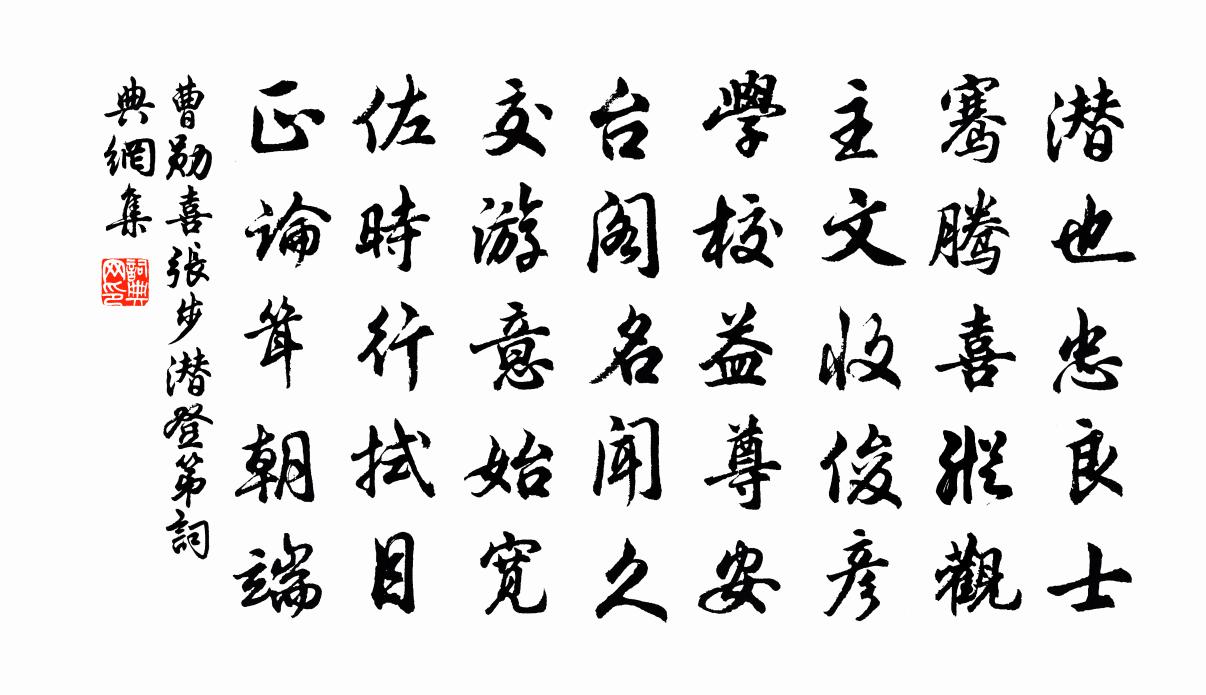 潜也忠良士
騫騰喜縱觀
主文收俊彦
學校益尊安
台阁名闻久
交游意始宽
佐時行拭目
正論耸朝端
曹勛喜張步潜登第詞
典網集
詞典
网印